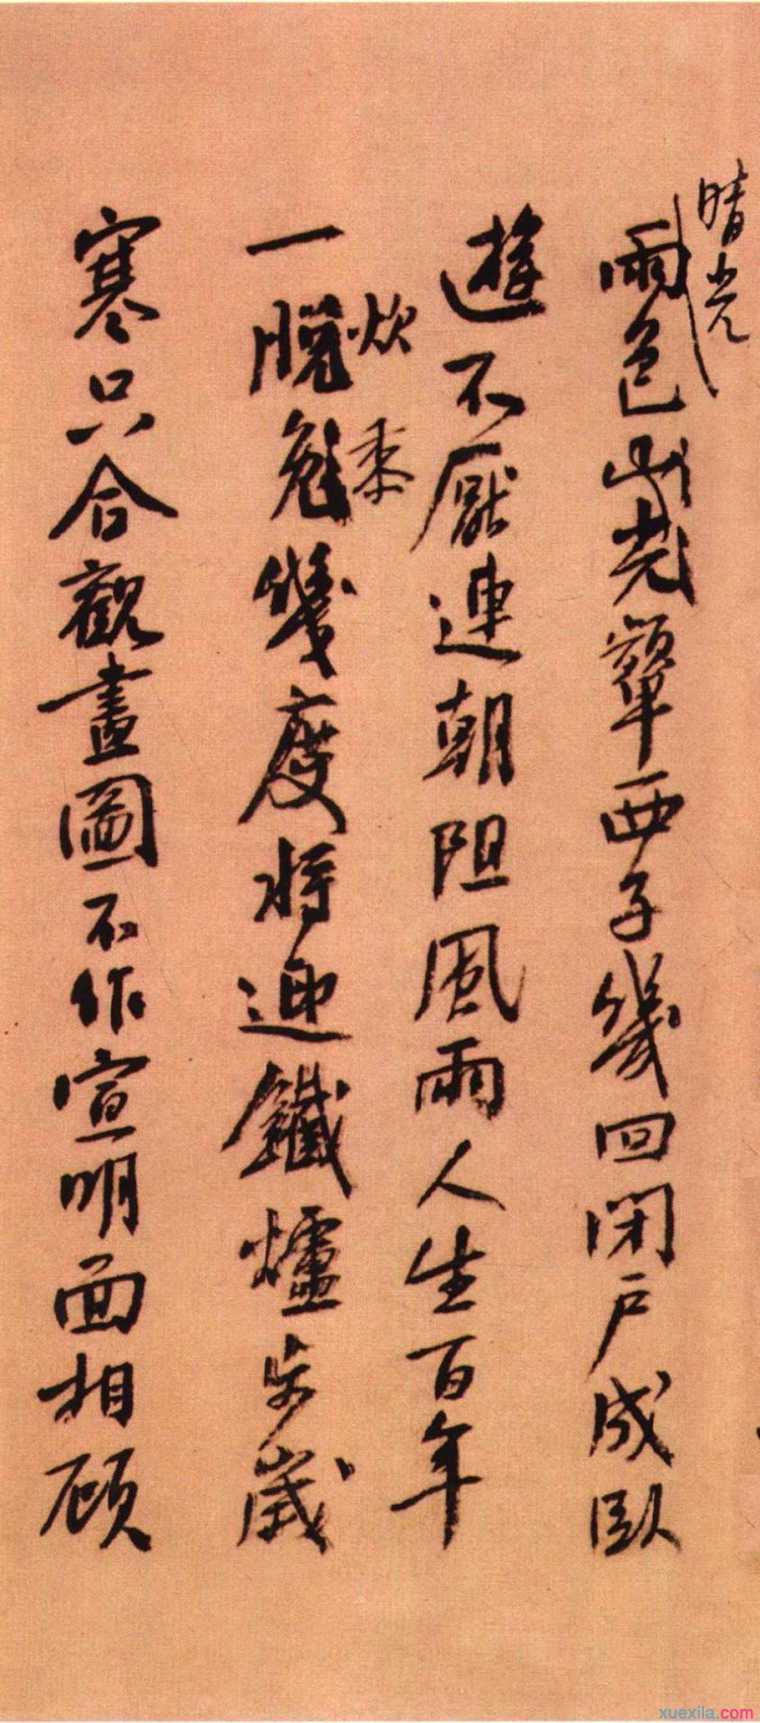 晴光
雨色山光顰西子幾回閉戶成臥
遊不厭連朝阻風雨人生百年
炊黍
一脫兔幾度將迎鐵爐步歲
寒只合觀畫圖不作宣明面相顧
xuexila.com